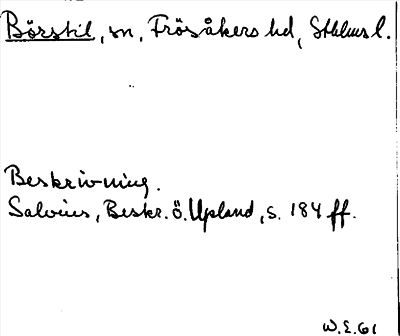 Börstil, sn, Frösåkers hd, Sthlms l.
Beskrivning.
Salvius, Beskr. ö. Upland, s. 184 ff.
W.E.61